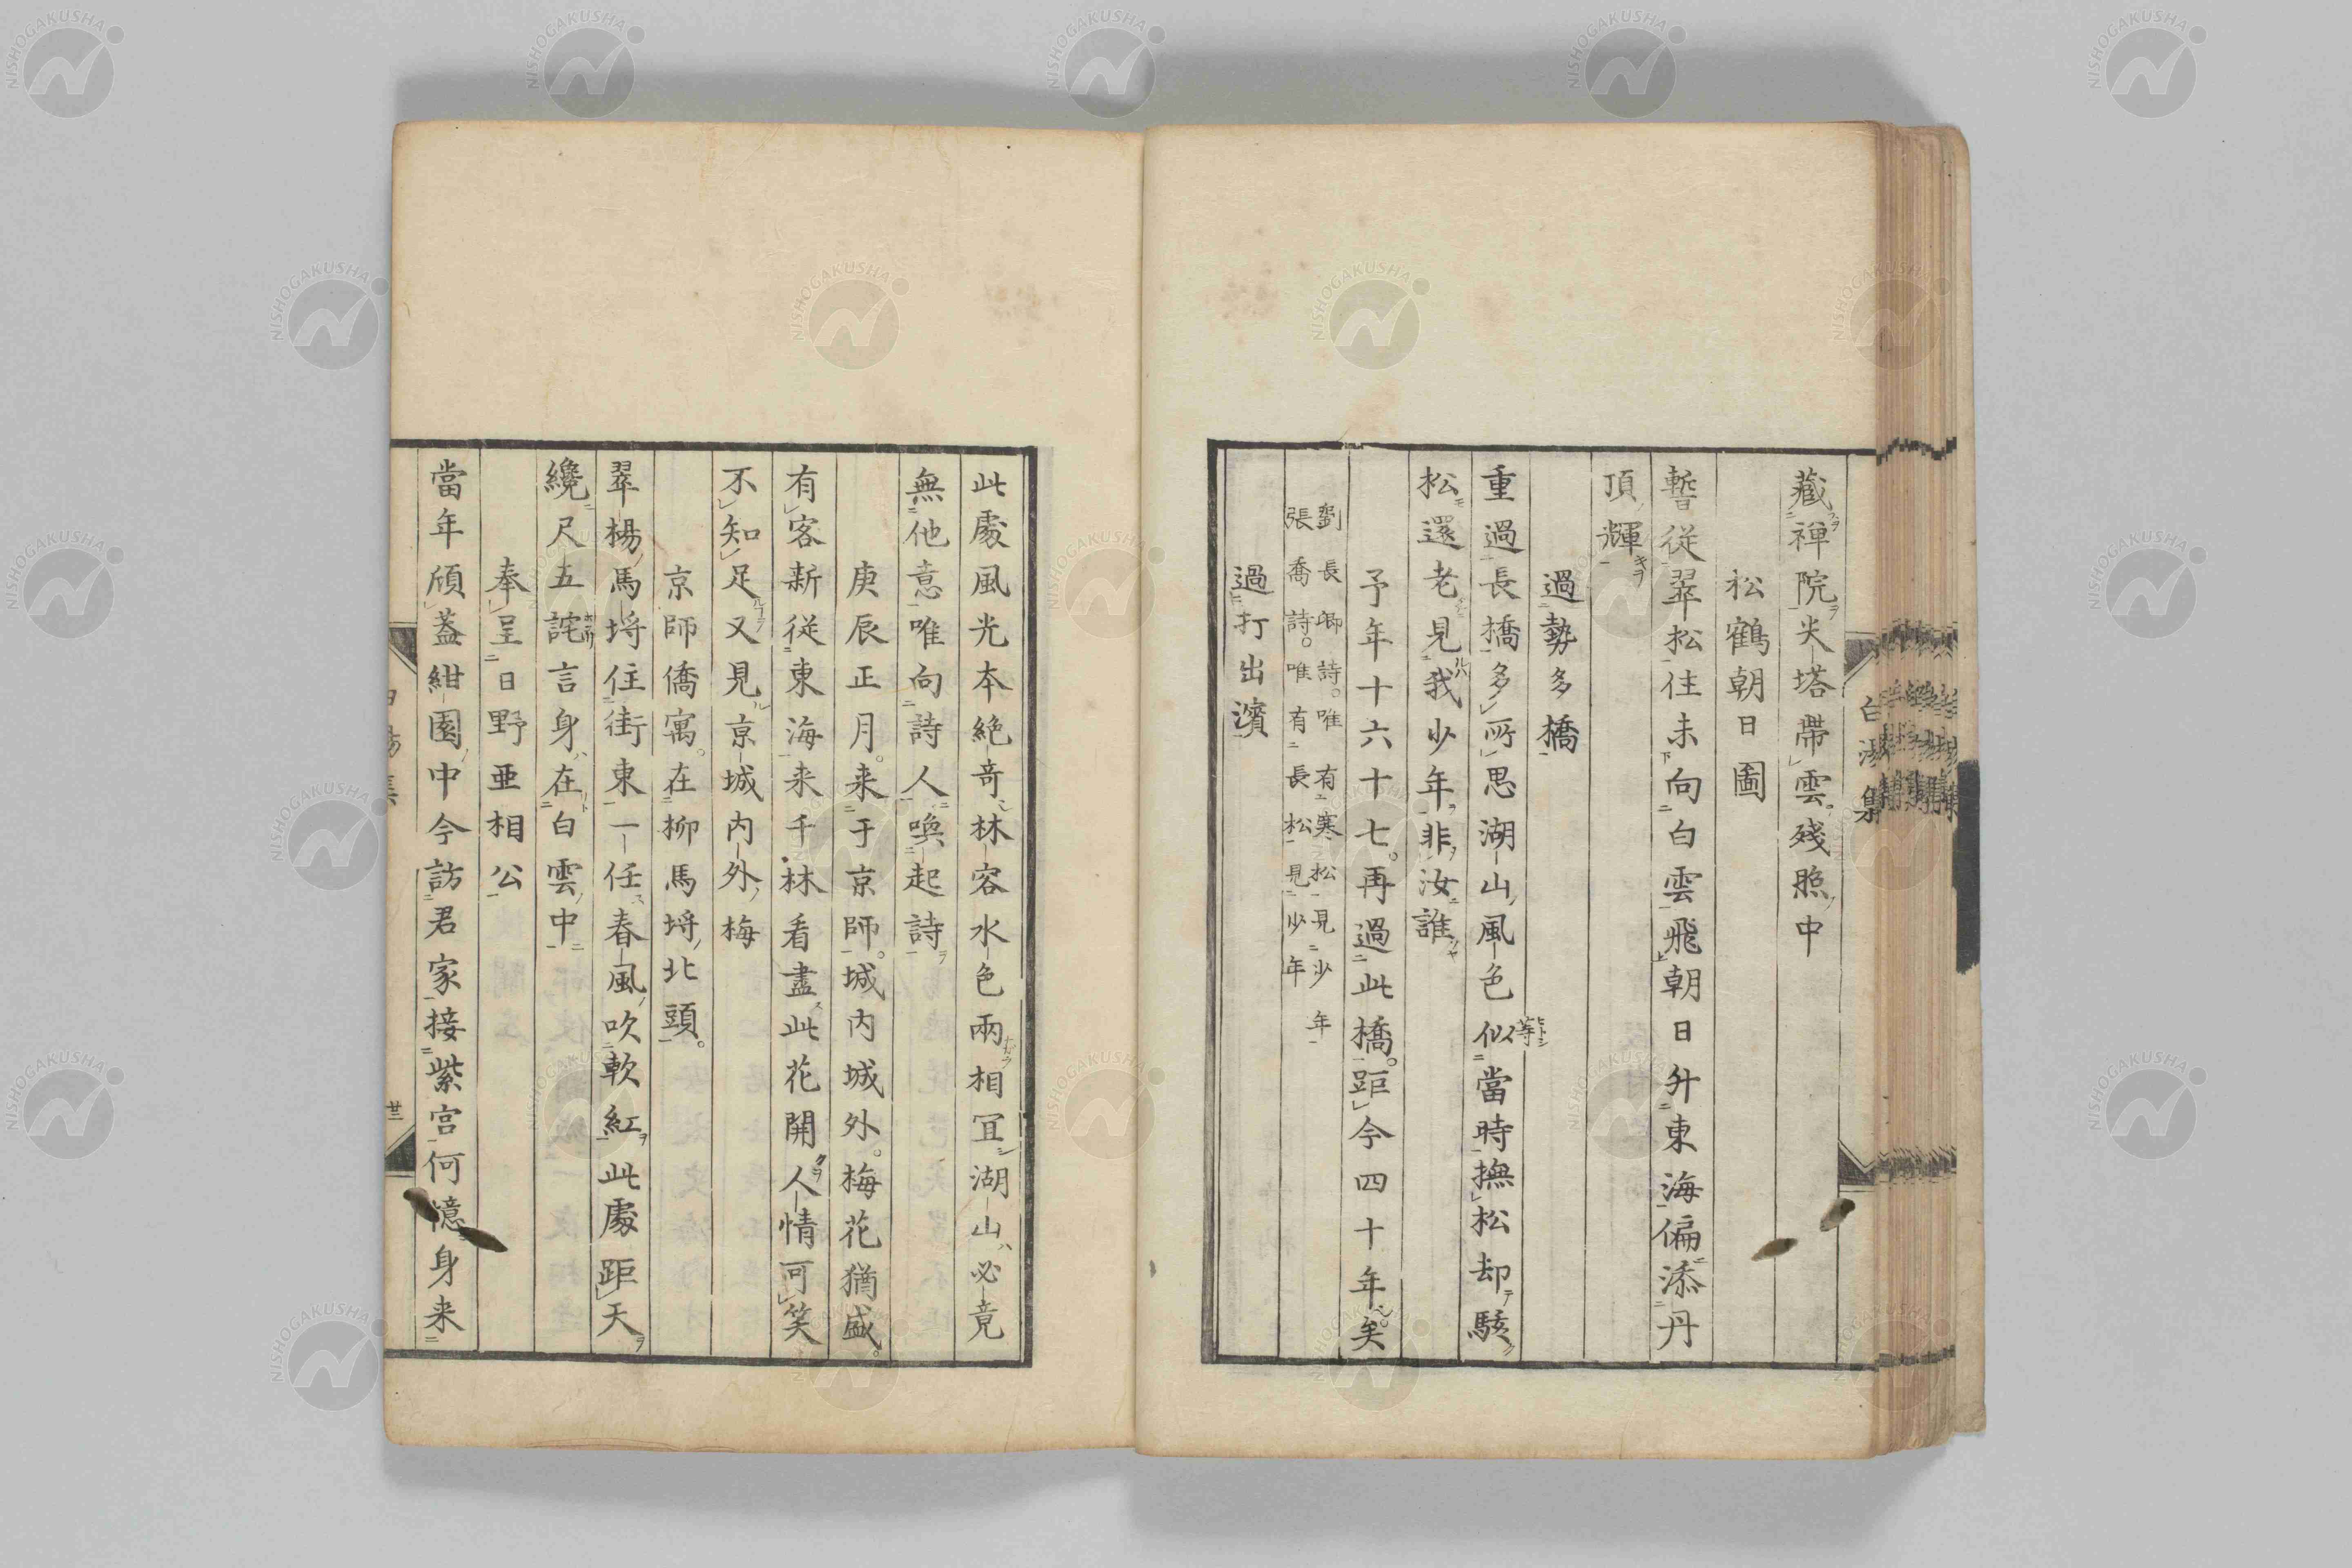 藏禅院尖塔帶雲殘照中
松鶴朝日圖
暫從翠松住未向白雲飛朝日升東海偏添丹
頂輝
過勢多橋
重過長橋多所思湖山風色似當時撫松却駭
松還老見我少年非汝誰
予年十六十七。再過此橋。距今四十年矣
劉長卿詩。唯有寒松見少年
張喬詩。唯有長松見少年
過打出濱
此處風光本絶奇林容水色兩相冝湖山必竟
無他意唯向詩人喚起詩
庚辰正月。来于京師。城内城外。梅花猶盛。
有客新從東海来千林看盡此花開人情可笑
不知足又見京城内外梅
京師僑寓。在柳馬埒北頭。
翠楊馬埒住街東一任春風吹軟紅此處距天
纔尺五詫言身在白雲中
奉呈日野亜相公
當年頎蓋紺園中今訪君家接紫宮何憶身来
白湯集
廿三
NISHOGAKUSHA